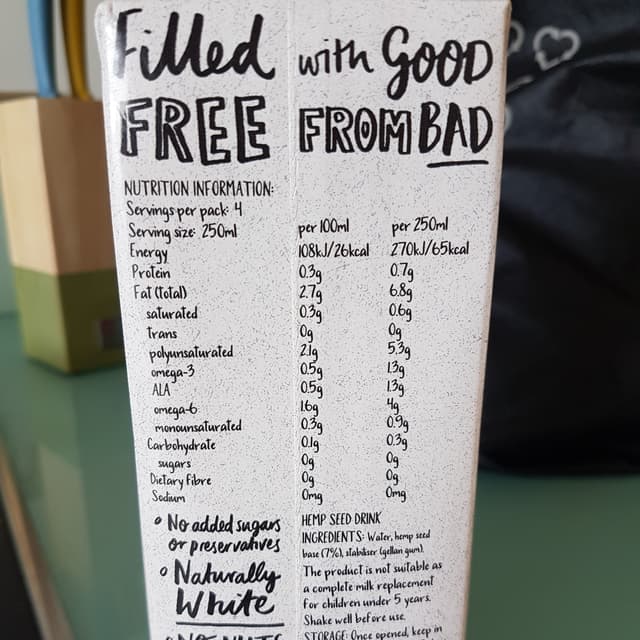 Filled with GOOD
FREE FROM BAD
NUTRITION INFORMATION:
Servings per pack: 4
Serving size: 250ml per 100ml per 250ml
Energy 108kJ/26kcal 270kJ/65kcal
Protein 0.3g 0.7g
Fat (total) 2.7g 6.8g
saturated 0.3g 0.6g
trans 0g 0g
polyunsaturated 2.1g 5.3g
omega-3 0.5g 1.3g
ALA 0.5g 1.3g
omega-6 1.6g 4g
monounsaturated 0.3g 0.9g
Carbohydrate 0.1g 0.3g
sugars 0g 0g
Dietary Fibre 0g 0g
Sodium 0mg 0mg
° No added sugars
or preservatives
° Naturally
White
HEMP SEED DRINK
INGREDIENTS: Water, hemp seed
base (7%), stabiliser (gellan gum).
The product is not suitable as
a complete milk replacement
for children under 5 years.
Shake well before use.
STORAGE: Once opened, keep in